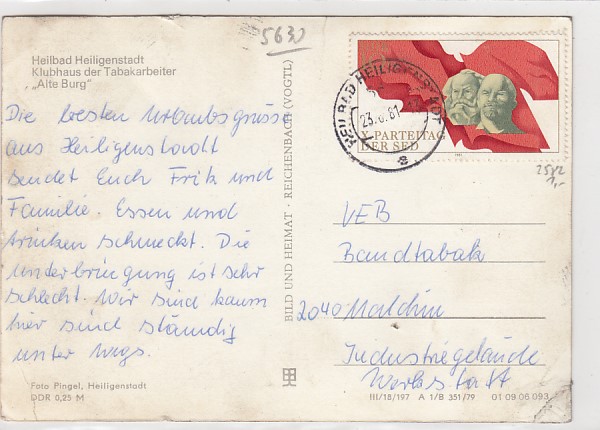 5630
Heilbad Heiligenstadt
Klubhaus der Tabakarbeiter
„Alte Burg"
Die besten Urlaubsgrüsse
aus Heiligenstadt
sendet Euch Fritz und
Familie. Essen und
trinken schmeckt. Die
Unterbringung ist sehr
schlecht. Wir sind kaum
hier sind ständig
unter wegs.
Foto Pingel, Heiligenstadt
DDR 0,25 M
BILD UND HEIMAT · REICHENBACH (VOGTL)
HEILBAD HEILIGENSTADT
23.6.81
a
X. PARTEITAG
DER SED
1981
VEB
Bandtabak
2040 Malchin
Industriegelände
Werkstatt
III/18/197 A 1/B 351/79 01 09 06 093